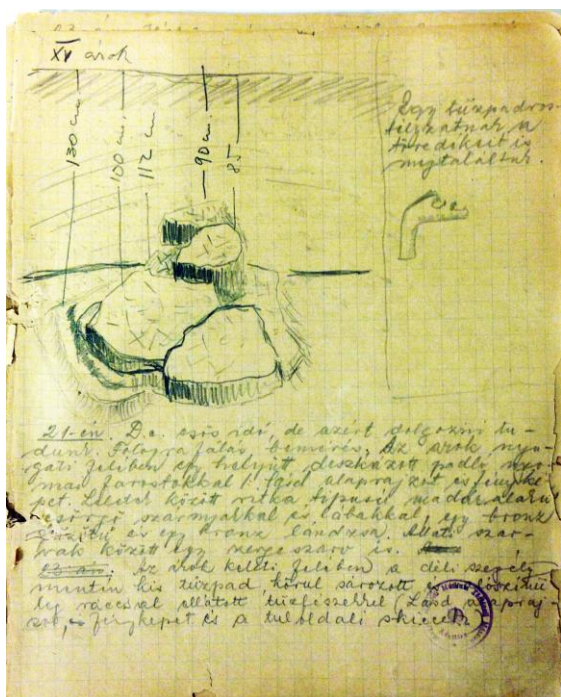 XV árok
130 cm.
100 cm
112 cm
90 cm.
85
Egy tűzpados
a
töredékeit is
megtaláltuk.
21-én. D.e. esős idő, de azért dolgozni tu-
dunk. Fotografálás, bemérés. Az árok nyu-
gati felében egy helyütt deszkázott padló nyo-
mai farostokkal (lásd alaprajzot és fényké-
pet. Leletek között ritka típusú madáralakú
csörgő szárnyakkal és lábakkal, egy bronz
és egy bronz lándzsa. Állati szar-
vak között egy zergeszarv is.
Az árok keleti felében a déli szegély
mentén kis tűzpad, körül sározott és
leg ráccsal ellátott tűzfészekkel (Lásd alapraj-
zot, és fényképet és a túloldali skiccet